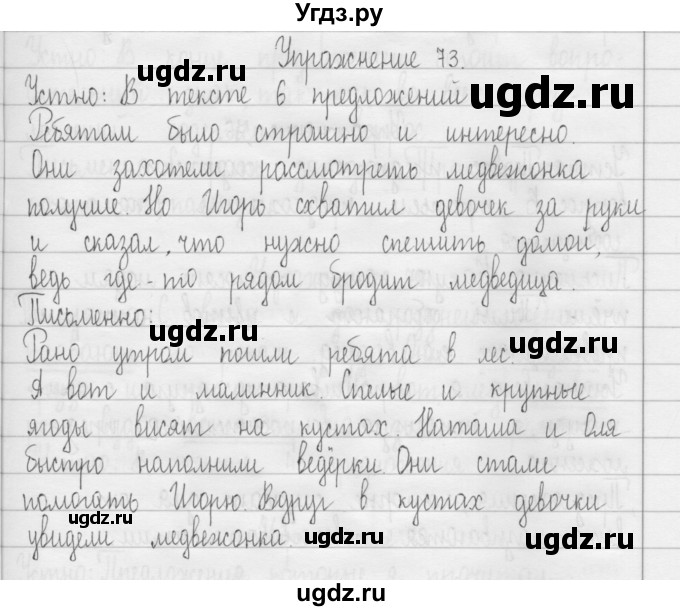 Угдз.ру
Упражнение 73.
Устно: В тексте 6 предложений
Ребятам было страшно и интересно.
Они захотели рассмотреть медвежонка
получше Но Игорь схватил девочек за руки
и сказал, что нужно спешить домой,
ведь где-то рядом бродит медведица
Письменно:
Рано утром пошли ребята в лес.
А вот и малинник. Спелые и крупные
ягоды висят на кустах. Наташа и Оля
быстро наполнили ведёрки. Они стали
помогать Игорю. Вдруг в кустах девочки
увидели медвежонка
ugdz.ru
ugdz.ru
ugdz.ru
ugdz.ru
ugdz.ru
ugdz.ru
ugdz.ru
ugdz.ru
ugdz.ru
ugdz.ru
ugdz.ru
ugdz.ru